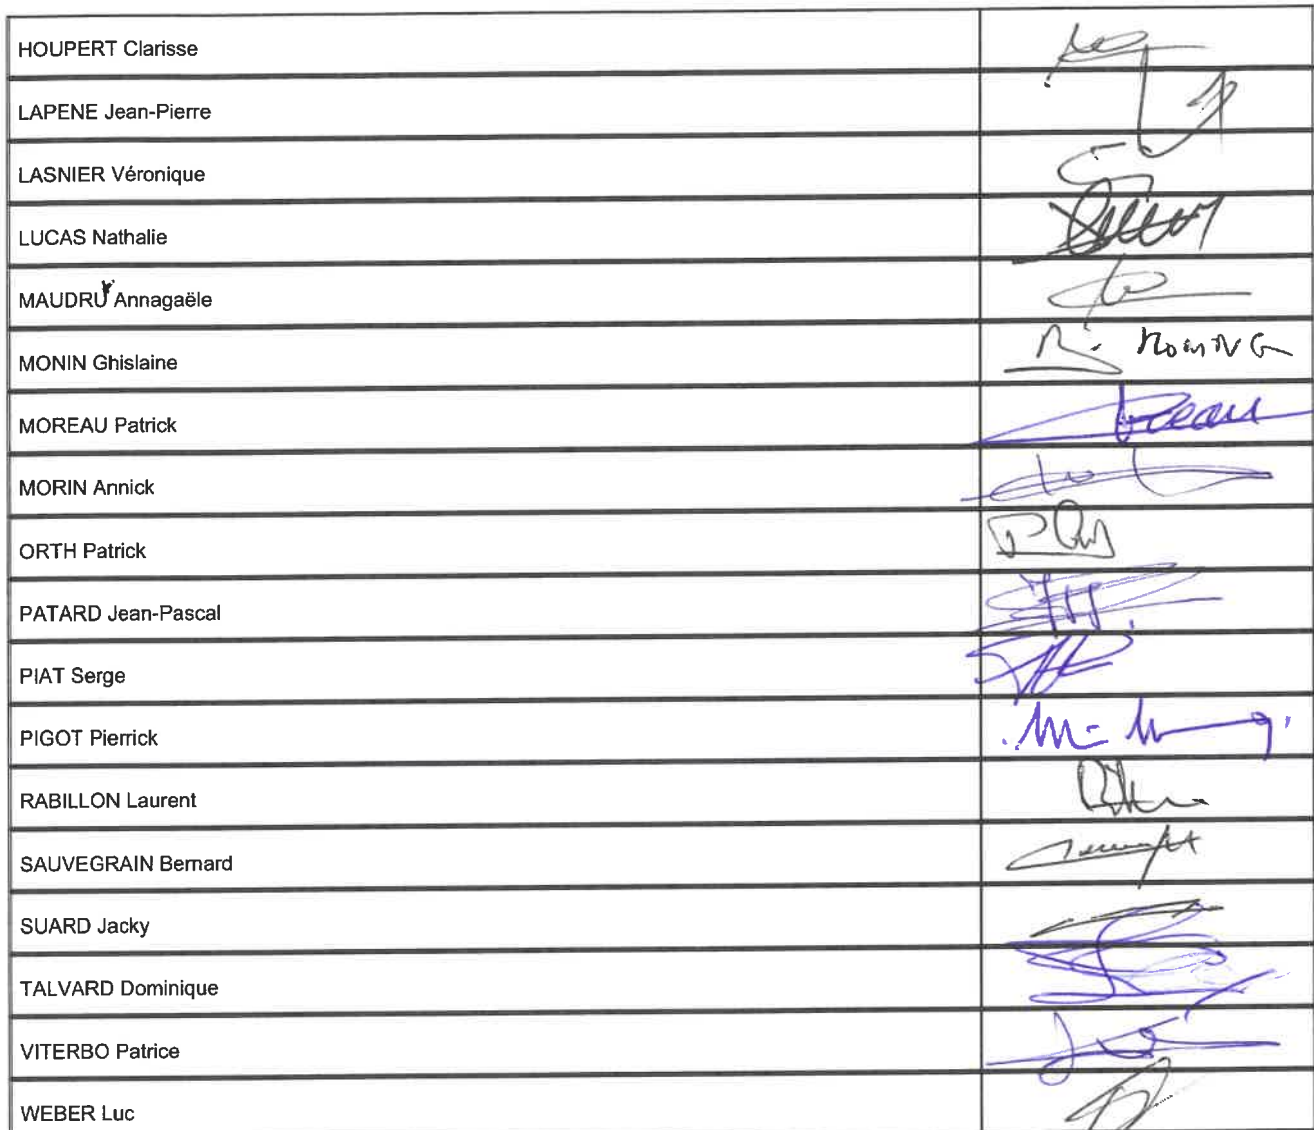 HOUPERT Clarisse
LAPENE Jean-Pierre
LASNIER Véronique
LUCAS Nathalie
MAUDRU Annagaële
MONIN Ghislaine
MOREAU Patrick
MORIN Annick
ORTH Patrick
PATARD Jean-Pascal
PIAT Serge
PIGOT Pierrick
RABILLON Laurent
SAUVEGRAIN Bernard
SUARD Jacky
TALVARD Dominique
VITERBO Patrice
WEBER Luc